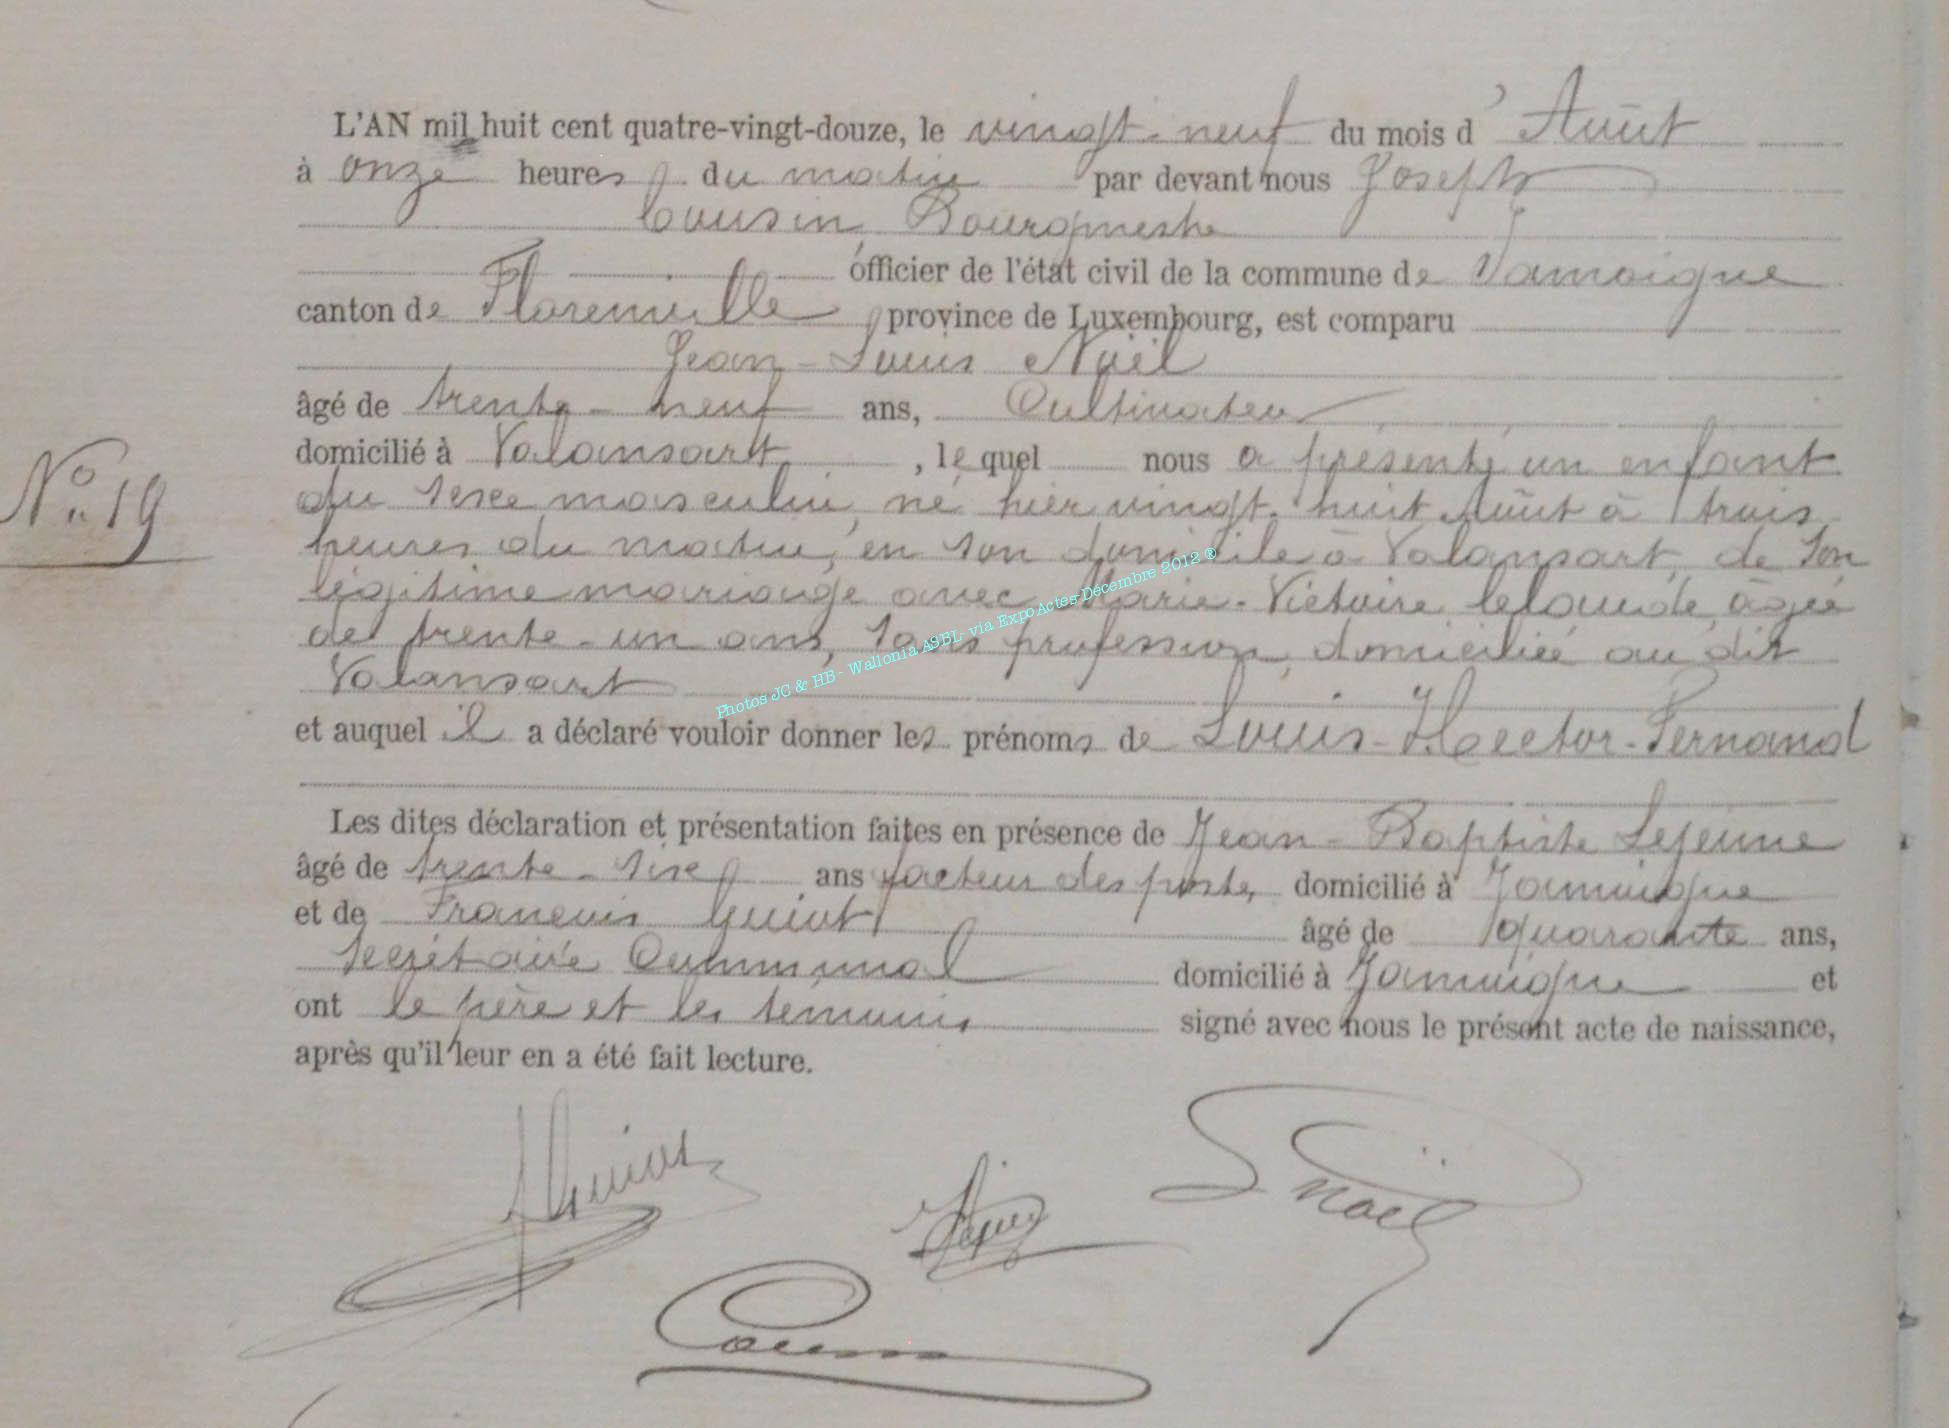 L'AN mil huit cent quatre-vingt-douze, le vingt-neuf du mois d'Août
à onze heures du matin par devant nous Joseph
Cousin, Bourgmestre
officier de l'état civil de la commune de Jamoigne
canton de Florenville province de Luxembourg, est comparu
Jean-Louis Noël
âgé de trente-neuf ans, Cultivateur
domicilié à Valansart, lequel nous a présenté un enfant
N° 19
du sexe masculin, né hier vingt-huit Août à trois
heures du matin, en son domicile à Valansart, de son
légitime mariage avec Marie-Victoire, âgée
de trente-un ans, sans profession, domiciliée au dit
Valansart
Photos JC & HB - Wallonia ASBL- via ExpoActes-Décembre 2012 ®
et auquel il a déclaré vouloir donner les prénoms de Louis-Hector-Fernand
Les dites déclaration et présentation faites en présence de Jean-Baptiste Lejeune
âgé de trente-six ans facteur des postes, domicilié à Jamoigne
et de François Guiot âgé de quarante ans,
Secrétaire Communal domicilié à Jamoigne et
ont le père et les témoins signé avec nous le présent acte de naissance,
après qu'il leur en a été fait lecture.
Guiot
Noël
Cousin